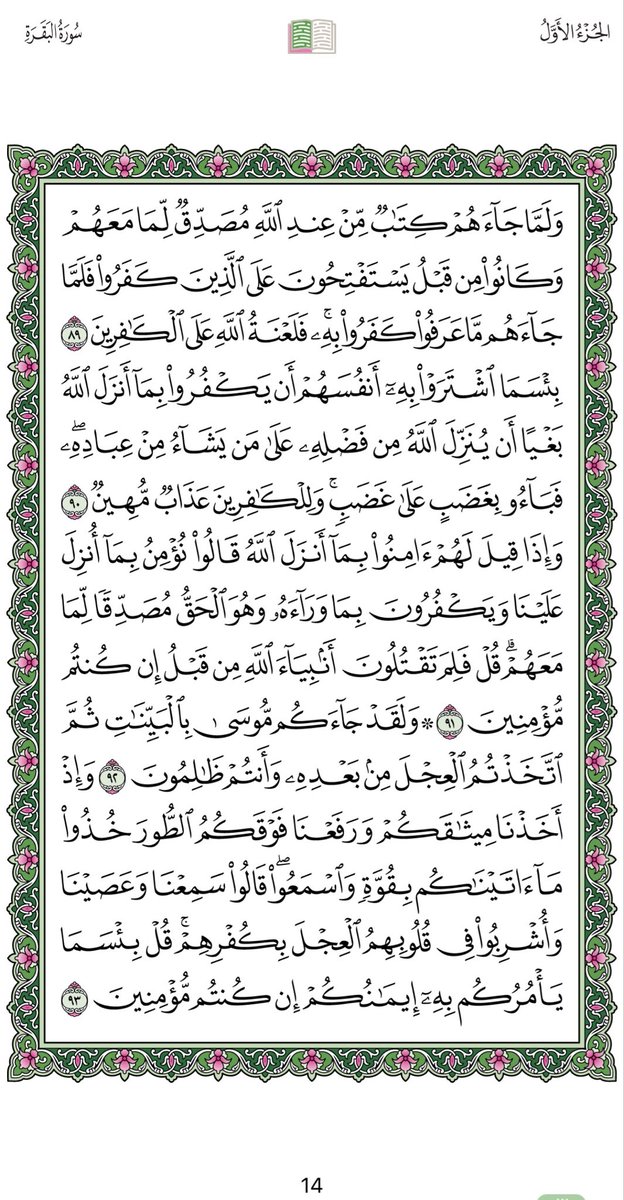 الجُزْءُ الأَوَّلُ
سُورَةُ البَقَرَةِ
وَلَمَّا جَآءَهُمْ كِتَٰبٌ مِّنْ عِندِ ٱللَّهِ مُصَدِّقٌ لِّمَا مَعَهُمْ
وَكَانُوا۟ مِن قَبْلُ يَسْتَفْتِحُونَ عَلَى ٱلَّذِينَ كَفَرُوا۟ فَلَمَّا
جَآءَهُم مَّا عَرَفُوا۟ كَفَرُوا۟ بِهِۦۚ فَلَعْنَةُ ٱللَّهِ عَلَى ٱلْكَٰفِرِينَ ٨٩
بِئْسَمَا ٱشْتَرَوْا۟ بِهِۦٓ أَنفُسَهُمْ أَن يَكْفُرُوا۟ بِمَآ أَنزَلَ ٱللَّهُ
بَغْيًا أَن يُنَزِّلَ ٱللَّهُ مِن فَضْلِهِۦ عَلَىٰ مَن يَشَآءُ مِنْ عِبَادِهِۦۖ
فَبَآءُو بِغَضَبٍ عَلَىٰ غَضَبٍۚ وَلِلْكَٰفِرِينَ عَذَابٌ مُّهِينٌ ٩٠
وَإِذَا قِيلَ لَهُمْ ءَامِنُوا۟ بِمَآ أَنزَلَ ٱللَّهُ قَالُوا۟ نُؤْمِنُ بِمَآ أُنزِلَ
عَلَيْنَا وَيَكْفُرُونَ بِمَا وَرَآءَهُۥ وَهُوَ ٱلْحَقُّ مُصَدِّقًا لِّمَا
مَعَهُمْۗ قُلْ فَلِمَ تَقْتُلُونَ أَنۢبِيَآءَ ٱللَّهِ مِن قَبْلُ إِن كُنتُم
مُّؤْمِنِينَ ٩١ ۞ وَلَقَدْ جَآءَكُم مُّوسَىٰ بِٱلْبَيِّنَٰتِ ثُمَّ
ٱتَّخَذْتُمُ ٱلْعِجْلَ مِنۢ بَعْدِهِۦ وَأَنتُمْ ظَٰلِمُونَ ٩٢ وَإِذْ
أَخَذْنَا مِيثَٰقَكُمْ وَرَفَعْنَا فَوْقَكُمُ ٱلطُّورَ خُذُوا۟
مَآ ءَاتَيْنَٰكُم بِقُوَّةٍ وَٱسْمَعُوا۟ۖ قَالُوا۟ سَمِعْنَا وَعَصَيْنَا
وَأُشْرِبُوا۟ فِى قُلُوبِهِمُ ٱلْعِجْلَ بِكُفْرِهِمْۚ قُلْ بِئْسَمَا
يَأْمُرُكُم بِهِۦٓ إِيمَٰنُكُمْ إِن كُنتُم مُّؤْمِنِينَ ٩٣
14